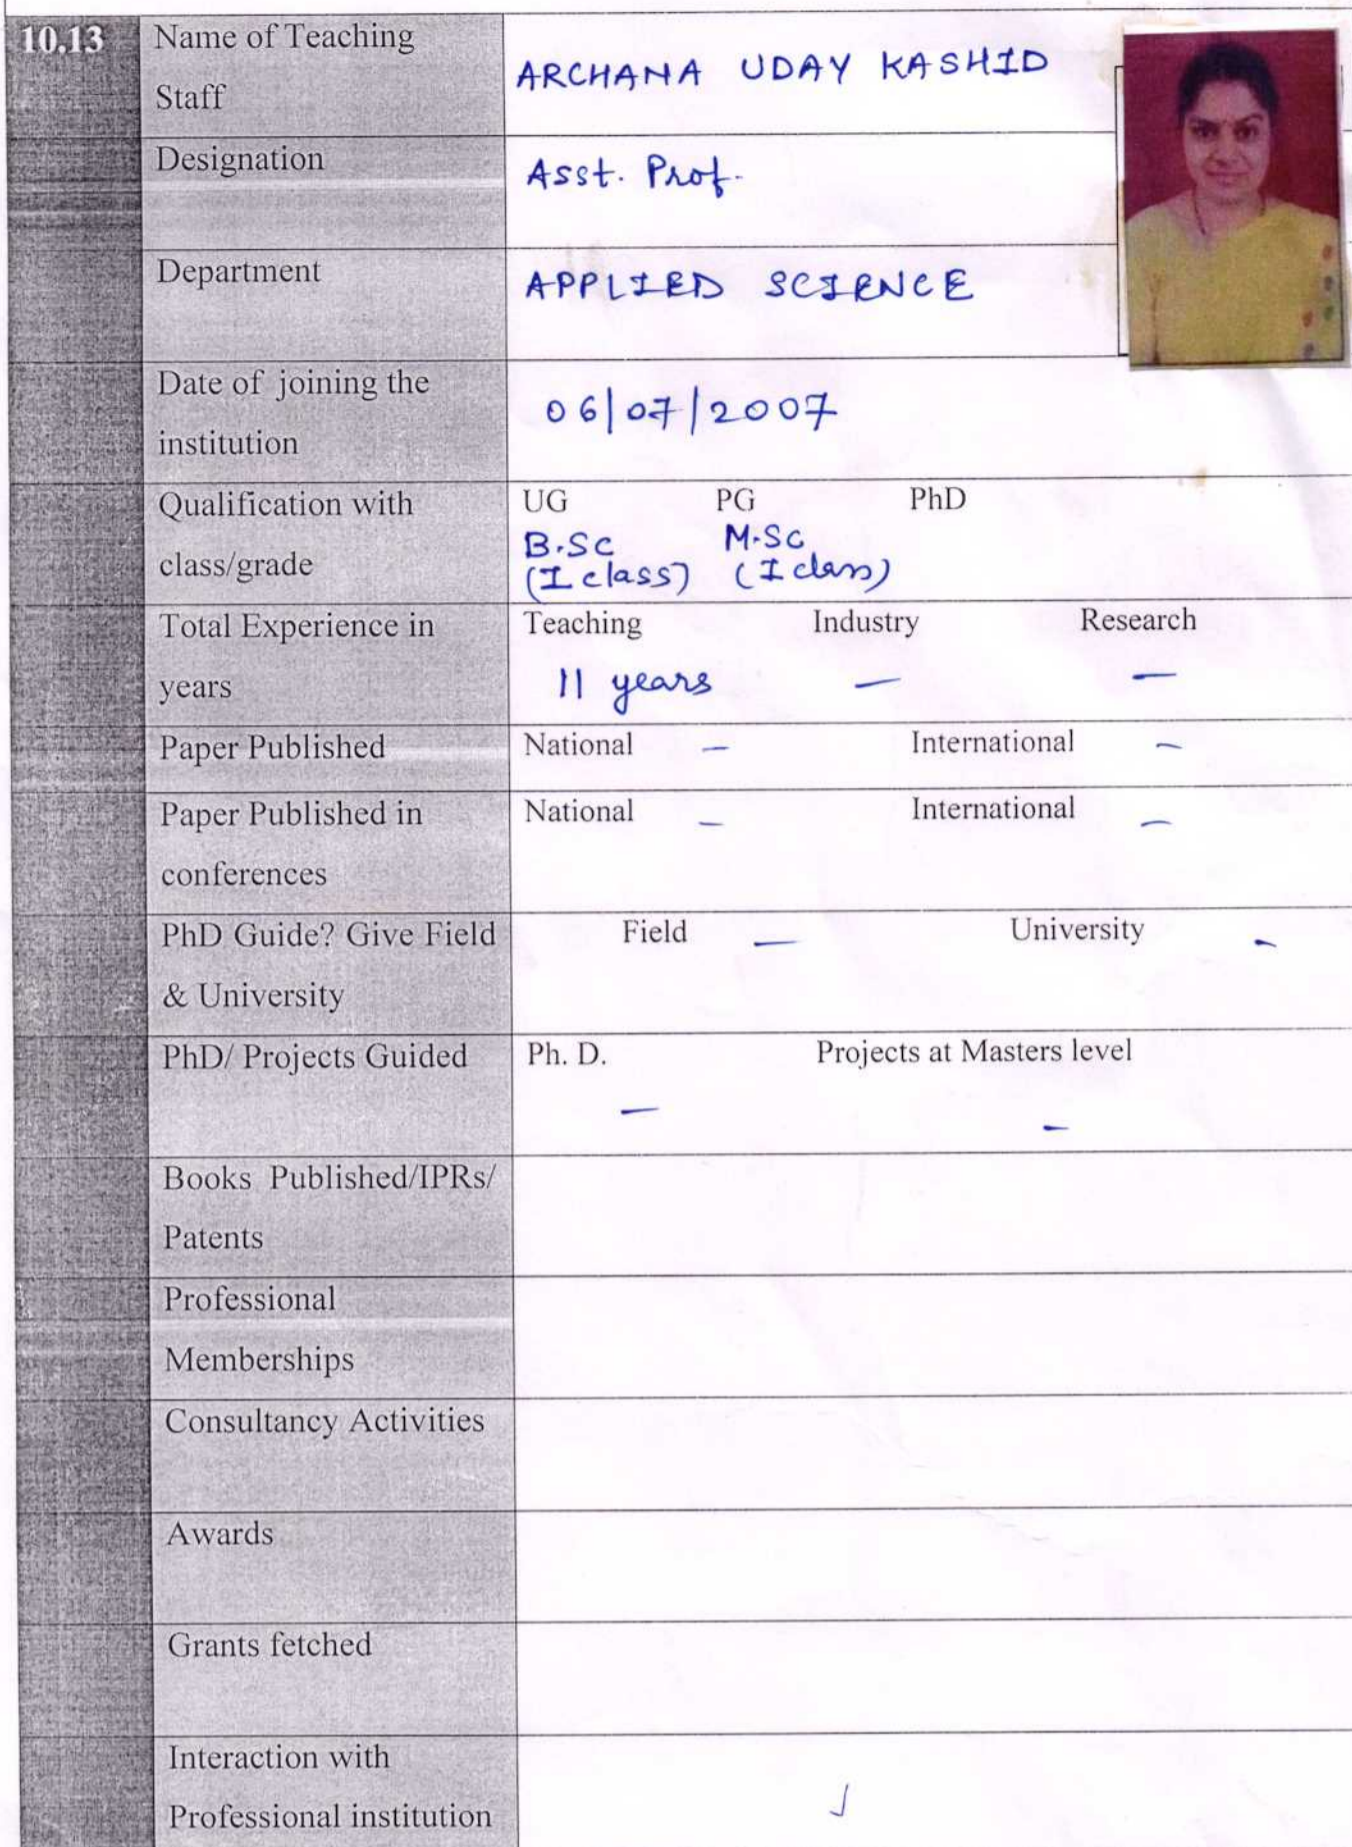 10.13 Name of Teaching
Staff
ARCHANA UDAY KASHID
Designation
Asst. Prof.
Department
APPLIED SCIENCE
Date of joining the
institution
06/07/2007
Qualification with
class/grade
UG PG PhD
B.Sc M.Sc
(I class) (I class)
Total Experience in
years
Teaching Industry Research
11 years — —
Paper Published
National — International —
Paper Published in
conferences
National — International —
PhD Guide? Give Field
& University
Field — University -
PhD/ Projects Guided
Ph. D. Projects at Masters level
— —
Books Published/IPRs/
Patents
Professional
Memberships
Consultancy Activities
Awards
Grants fetched
Interaction with
Professional institution